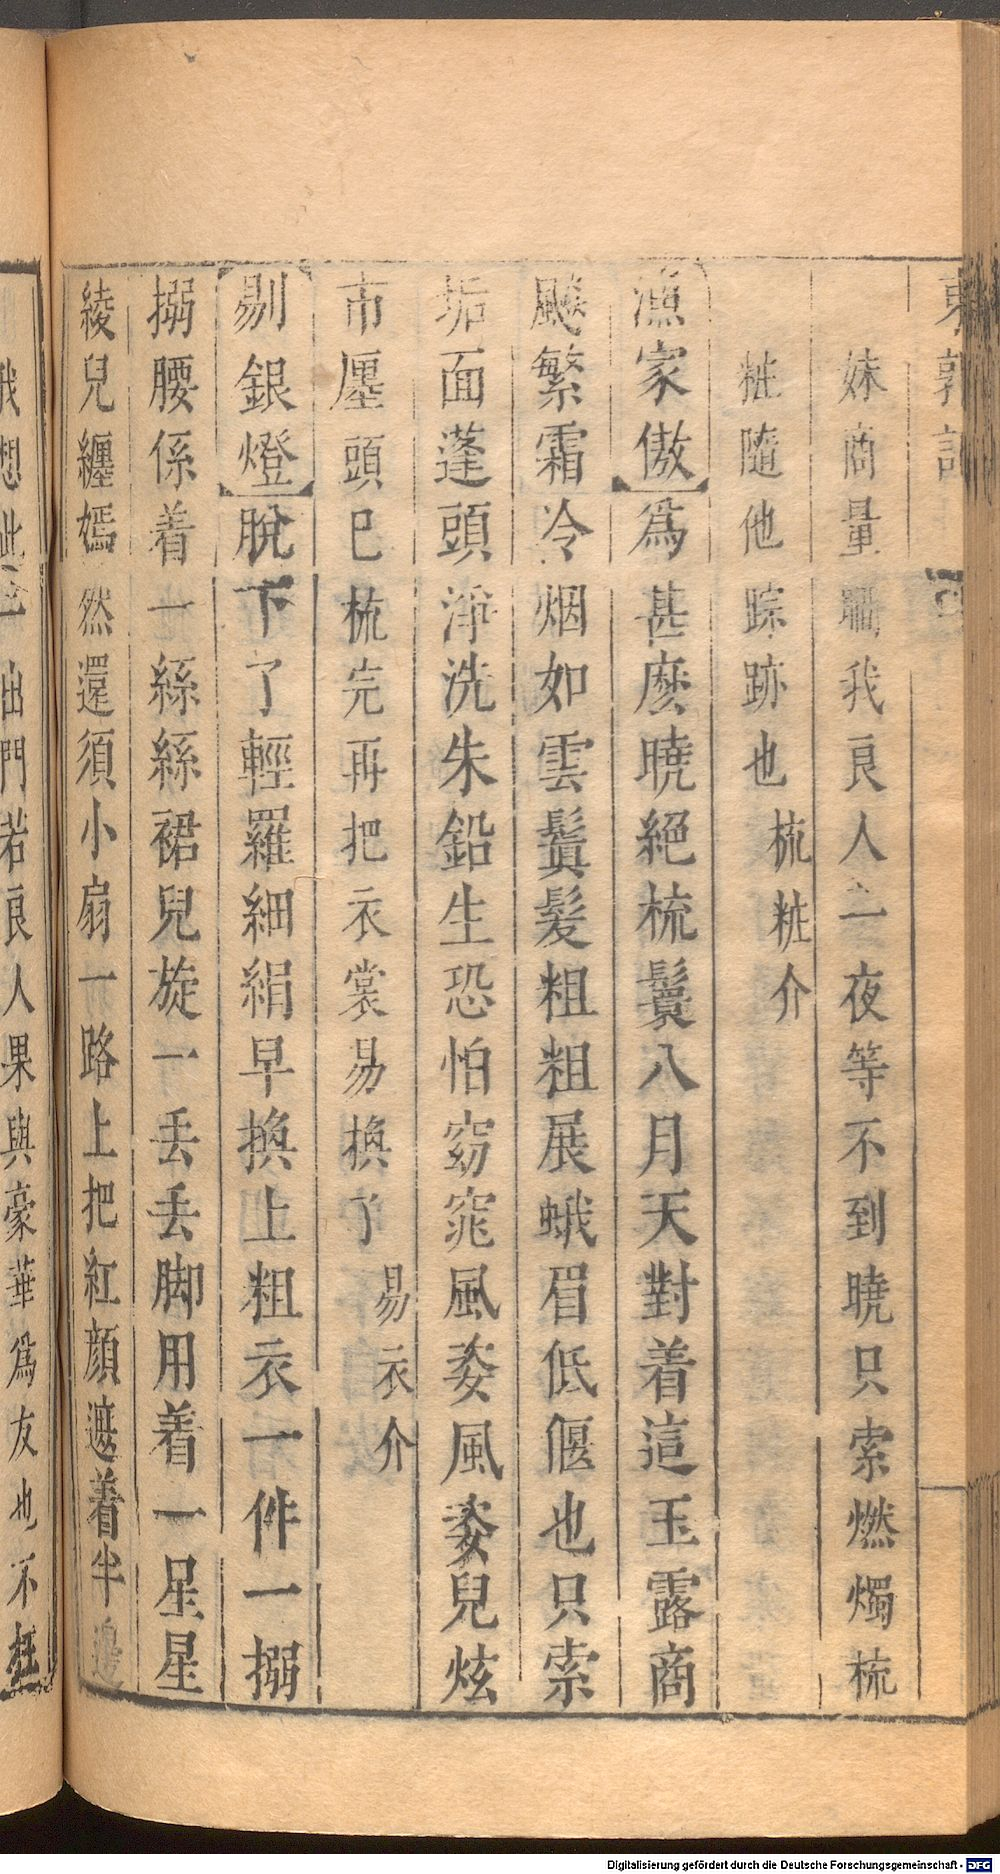 東郭記
妹商量瞷我良人之一夜等不到曉只索燃燭梳
粧隨他踪跡也 梳粧介
漁家傲 爲甚麽曉絕梳鬟八月天對着這玉露商
飈繁霜冷烟如雲鬒髮粗粗展蛾眉低偃也只索
垢面蓬頭淨洗朱鉛生恐怕窈窕風姿風姿兒炫
市廛頭巳梳完再把衣裳易換了 易衣介
剔銀燈 脫下了輕羅細絹早換上粗衣一件一搦
搦腰係着一絲絲裙兒旋一丢丢脚用着一星星
綾兒纏嫣然還須小扇一路上把紅顔遮着半邊
我想此 一出門若良人果與豪華爲友也不枉
Digitalisierung gefördert durch die Deutsche Forschungsgemeinschaft - DFG